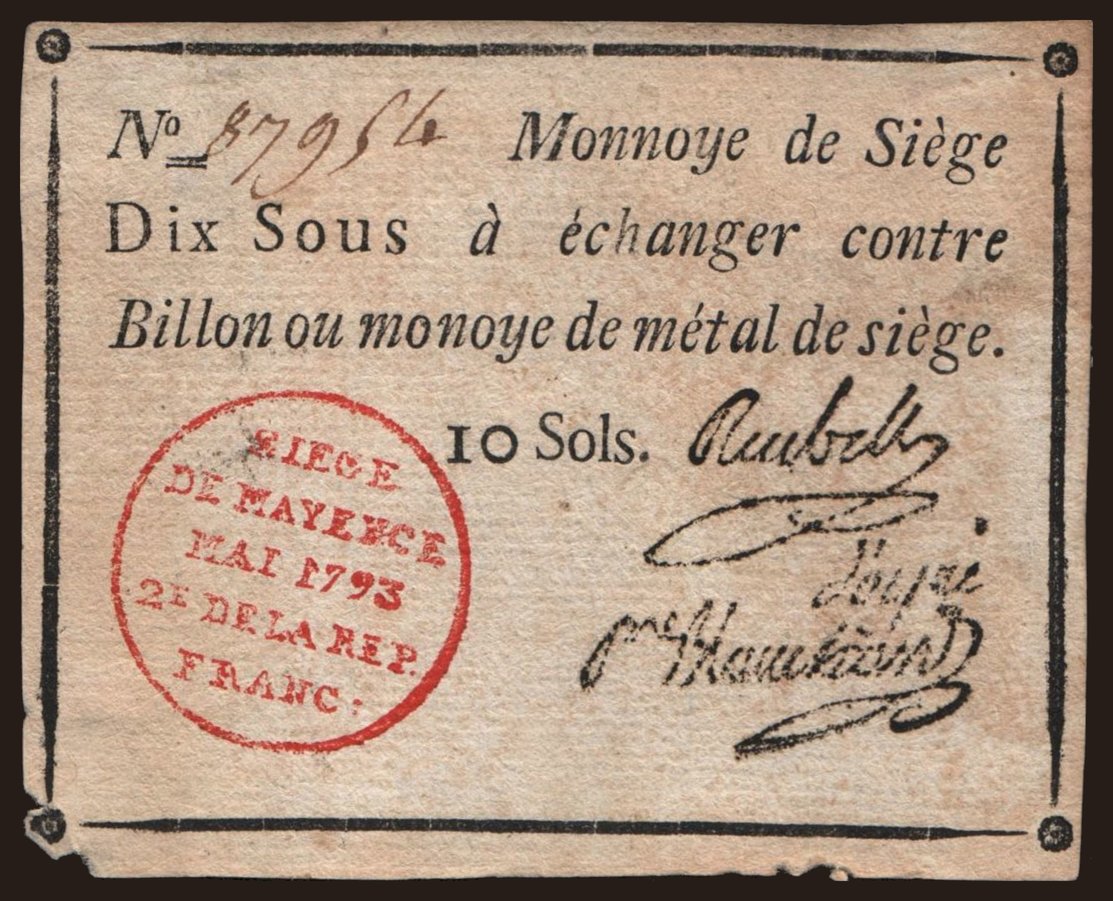 Nº 87954 Monnoye de Siège
Dix Sous à échanger contre
Billon ou monoye de métal de siège.
10 Sols. Reubell
SIEGE
DE MAYENCE
MAI 1793
2E DE LA REP.
FRANC: